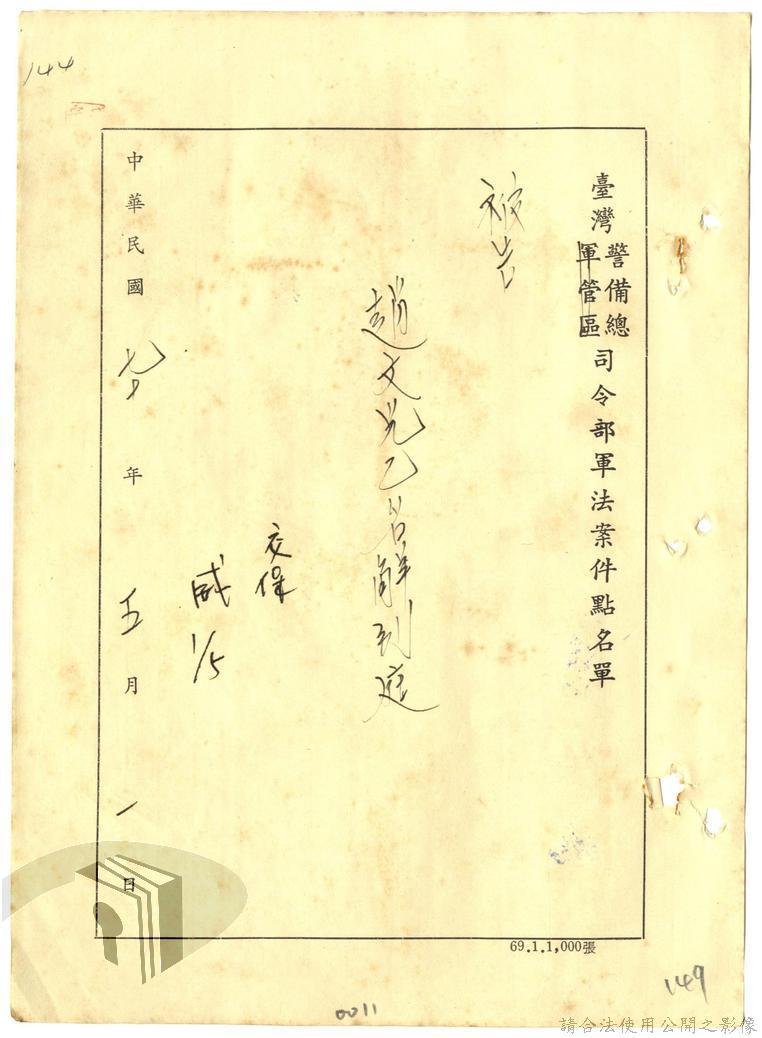 144
臺灣警備總軍管區司令部軍法案件點名單
被告
趙文
已
解到庭
交保
威 1/5
中華民國七十年五月一日
69.1.1,000張
149
0011
請合法使用公開之影像